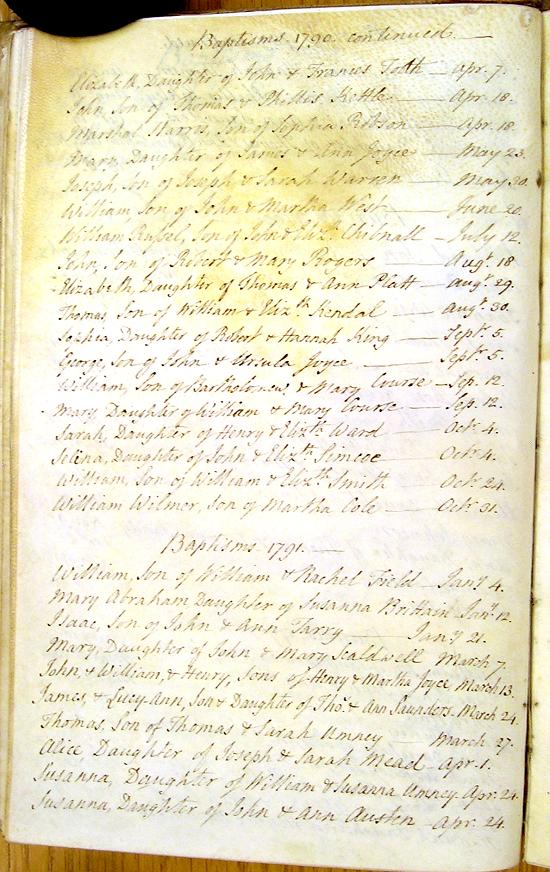 Baptisms 1790 continued
Elizabeth, Daughter of John & Frances Toth — Apr. 7.
John, Son of Thomas & Phillis Kettle — Apr. 18.
Marshal Harris, Son of Sophia Ribson — Apr. 18.
Mary, Daughter of James & Ann Joyce — May 23.
Joseph, Son of Joseph & Sarah Warren — May 30.
William, Son of John & Martha West — June 20.
William Russel, Son of John & Elizth Chibnall — July 12.
John, Son of Robert & Mary Rogers — Augt. 18
Elizabeth, Daughter of Thomas & Ann Platt — Augt. 29.
Thomas, Son of William & Elizth Kendal — Augt. 30.
Sophia, Daughter of Robert & Hannah King — Septr. 5.
George, Son of John & Ursula Joyce — Septr. 5.
William, Son of Bartholomew & Mary Course — Sep. 12.
Mary Daughter of William & Mary Course — Sep. 12.
Sarah, Daughter of Henry & Elizth Ward — Octr. 4.
Selina, Daughter of John & Elizth Simcoe — Octr. 4.
William, Son of William & Elizth Smith — Octr. 24.
William Wilmer, Son of Martha Cole — Octr. 31.
Baptisms 1791. —
William, Son of William & Rachel Field — Jany 4.
Mary Abraham, Daughter of Susanna Brittain Jany. 12.
Isaac, Son of John & Ann Tarry — Jany 21.
Mary, Daughter of John & Mary Scaldwell March 7.
John, & William, & Henry, Sons of Henry & Martha Joyce, March 13.
James, & Lucy-Ann, Son & Daughter of Thos. & Ann Saunders. March 24.
Thomas, Son of Thomas & Sarah Umney — March 27.
Alice, Daughter of Joseph & Sarah Mead — Apr. 1.
Susanna, Daughter of William & Susanna Umney. Apr. 24.
Susanna, Daughter of John & Ann Austen — Apr. 24.